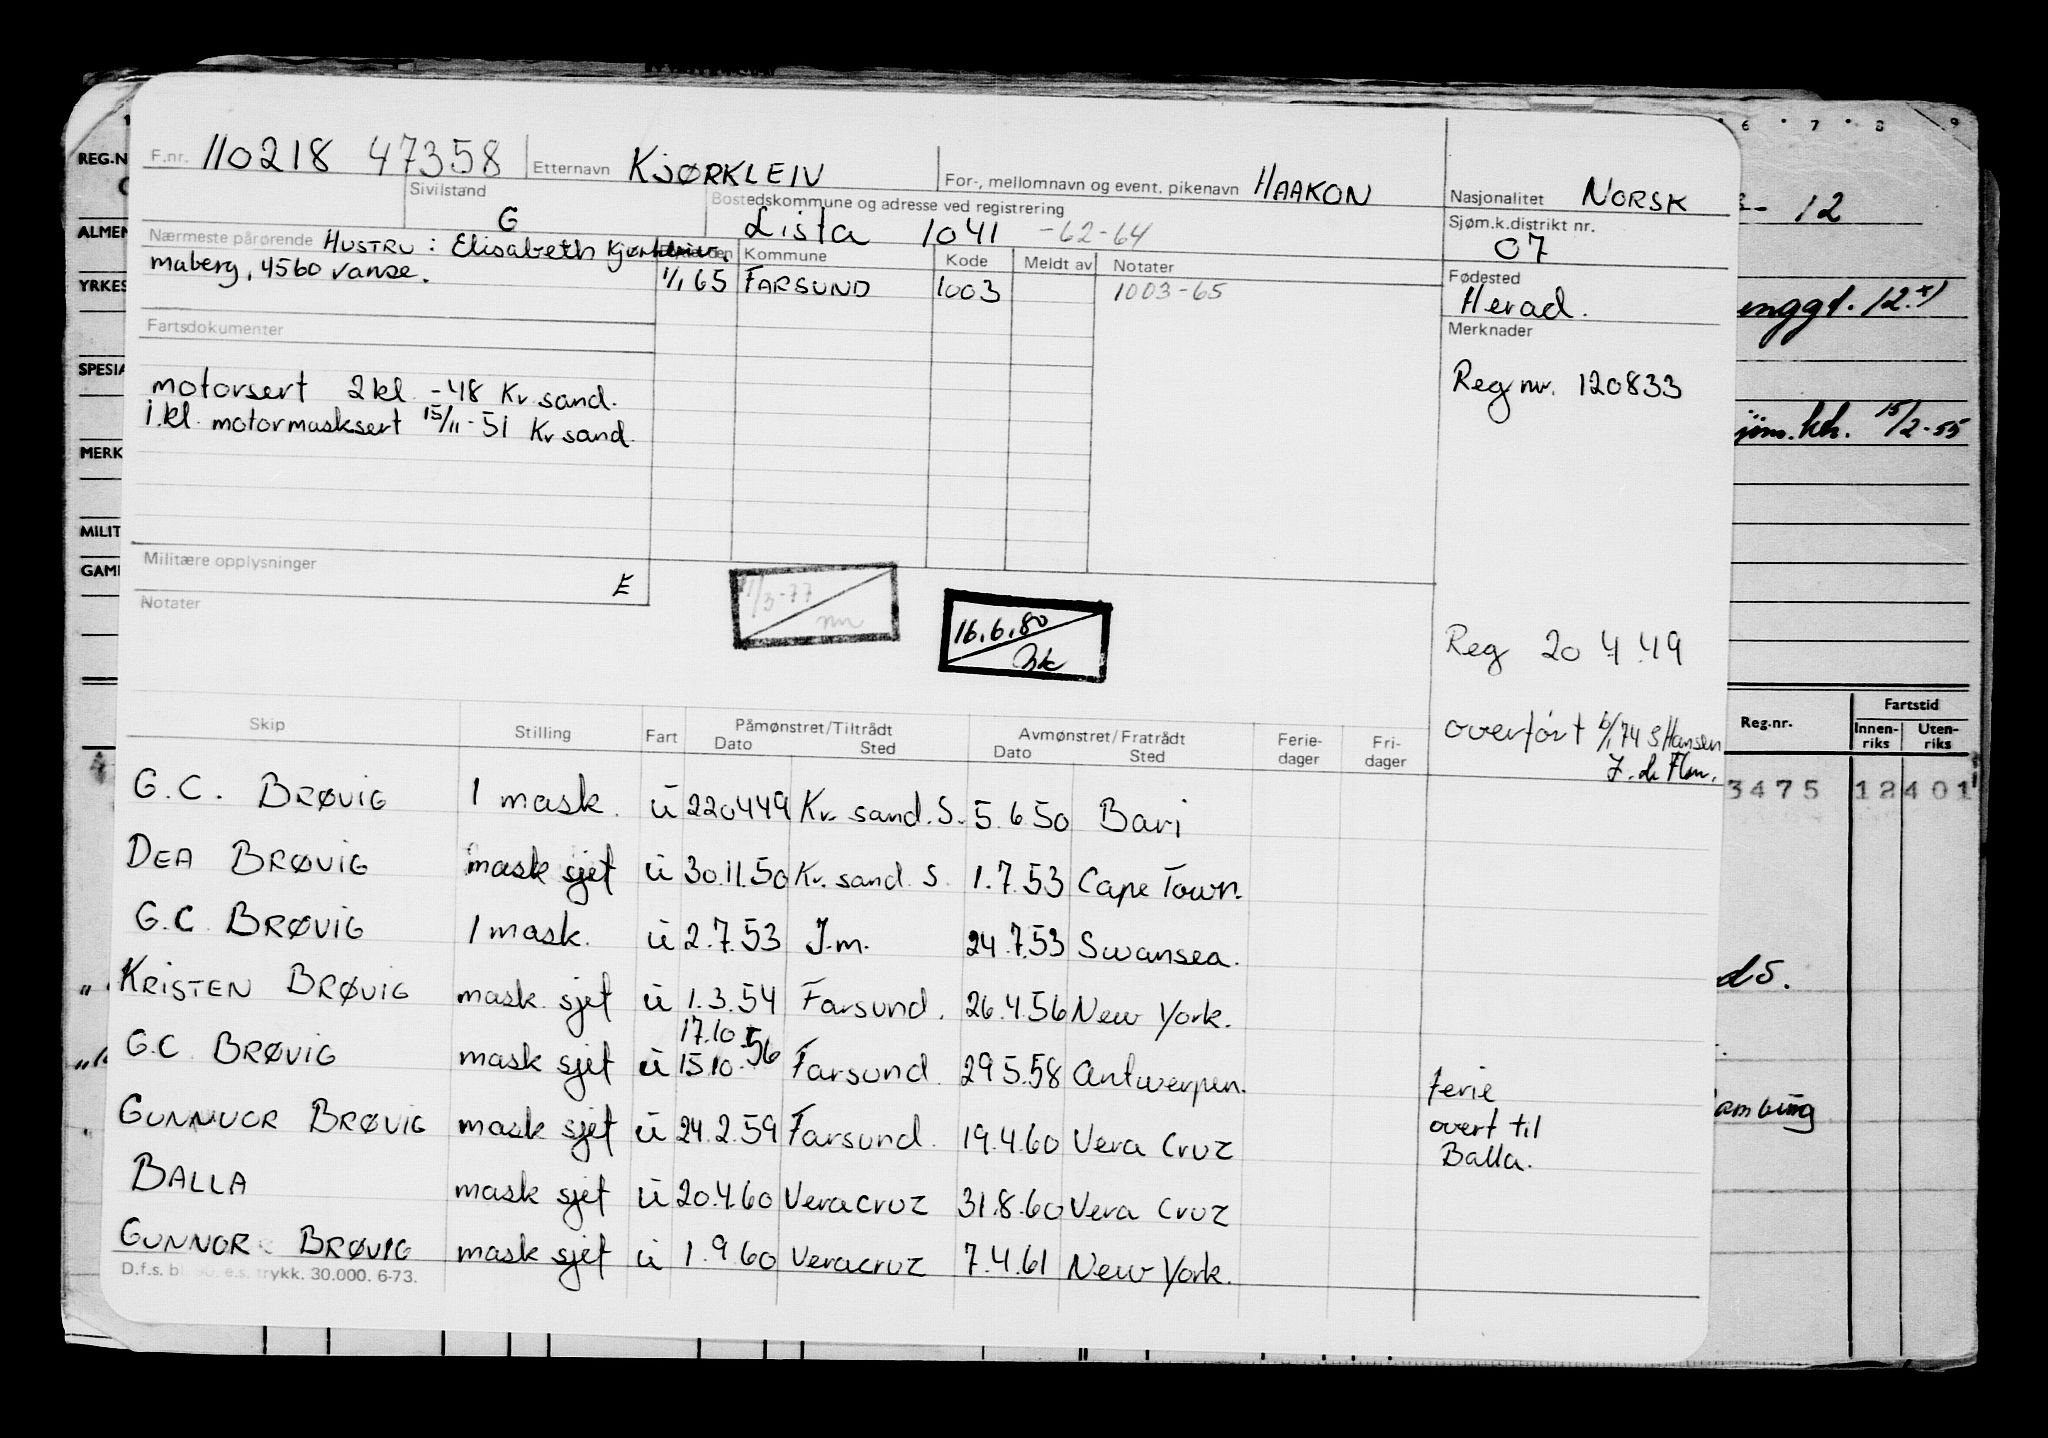 F.nr. 110218 47358 Etternavn KJØRKLEIV For-, mellomnavn og event. pikenavn HAAKON Nasjonalitet NORSK
Sivilstand G Bostedskommune og adresse ved registrering Lista 1041 -62-64 Sjøm.k.distrikt nr. 07
Nærmeste pårørende HUSTRU: Elisabeth Kjørkleiv. Kommune Kode Meldt av Notater
maberg, 4560 vanse. 1/1 65 FARSUND 1003 1003-65
Fødested
Herad.
Fartsdokumenter
Merknader
motorsert 2 kl -48 Kr.sand.
Reg nr. 120833
1.kl. motormasksert 15/11-51 Kr sand.
Militære opplysninger E
Notater
1/3-77
16.6.80
Reg 20 4 49
overført 6/1 74 S Hansen
Skip Stilling Fart Påmønstret/Tiltrådt Dato Sted Avmønstret/Fratrådt Dato Sted Ferie-dager Fri-dager
G.C. BRØVIG 1 mask. ü 220449 Kr. sand. S. 5.6.50 Bari
DEA BRØVIG mask sjef ü 30.11.50 Kr. sand. S. 1.7.53 Cape Town.
G.C BRØVIG 1 mask. ü 2.7.53 J.m. 24.7.53 Swansea.
KRISTEN BRØVIG mask. sjef ü 1.3.54 Farsund. 26.4.56 New York.
17.10
G.C BRØVIG mask sjef ü 15.10.56 Farsund. 29.5.58 Antwerpen.
ferie
GUNNVOR BRØVIG mask sjef ü 24.2.59 Farsund. 19.4.60 Vera Cruz
overf til
Balla.
BALLA mask sjef ü 20.4.60 Veracruz 31.8.60 Vera Cruz
GUNNOR BRØVIG mask sjef ü 1.9.60 Veracruz 7.4.61 New York.
D.f.s. bl. e.s. trykk. 30.000. 6-73.
REG.N
ALMEN
YRKES
SPESIA
MERK
MILIT
GAM
6 7 8 9
12
enggt. 12
15/2-55
Reg.nr. Fartstid
Innen-riks Uten-riks
3475 12 401
ds.
amburg